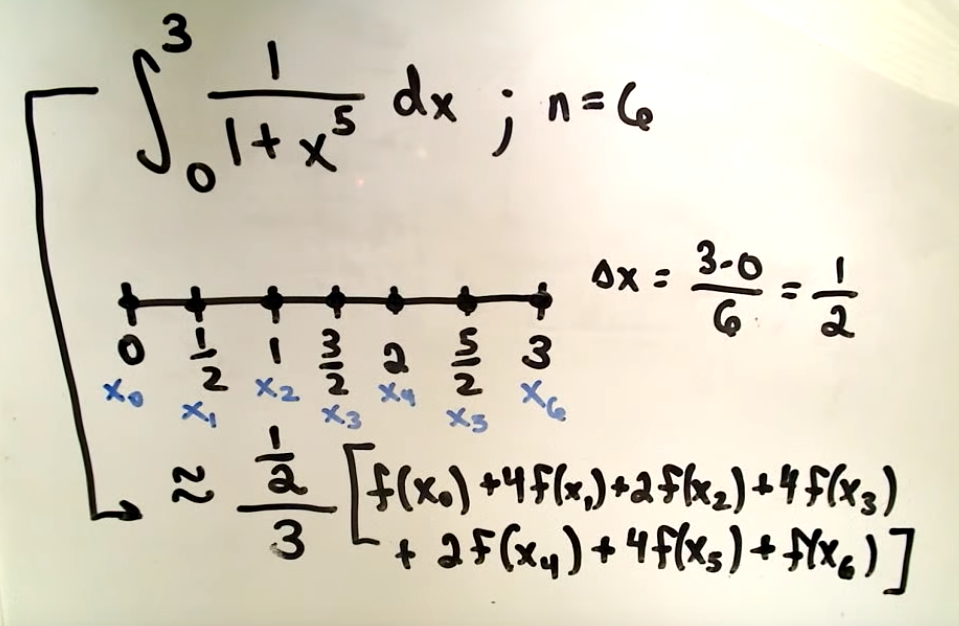 ∫₀³ 1/(1+x⁵) dx ; n=6
Δx = (3-0)/6 = 1/2
0 1/2 1 3/2 2 5/2 3
x₀ x₁ x₂ x₃ x₄ x₅ x₆
≈ (1/2)/3 [f(x₀)+4f(x₁)+2f(x₂)+4f(x₃)
+ 2f(x₄)+4f(x₅)+f(x₆)]